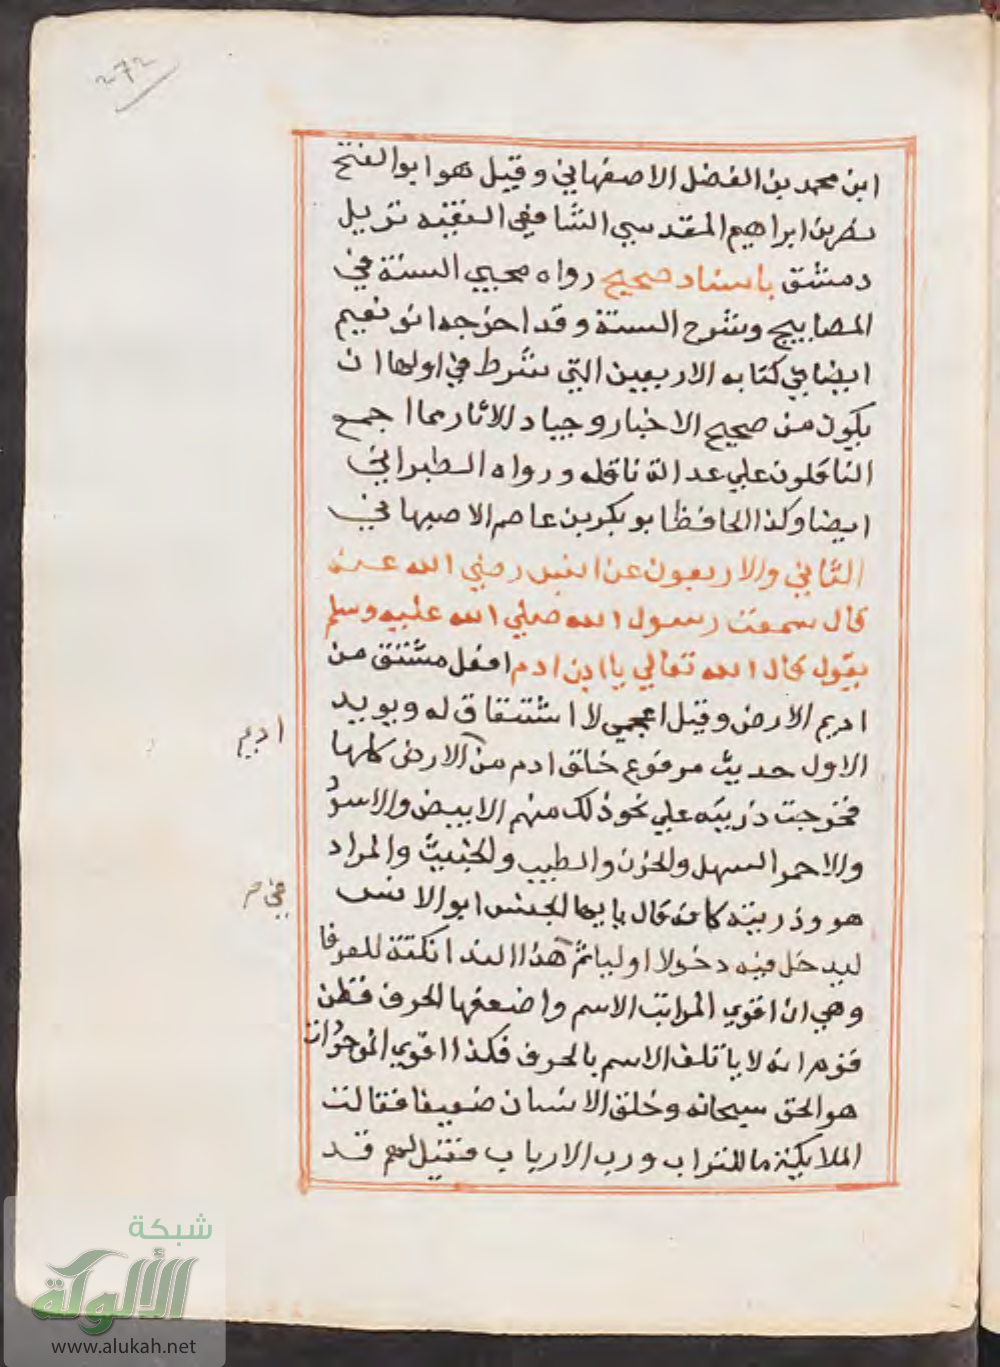 272
ابن محمد بن الفضل الاصفهاني وقيل هو ابو الفتح
نصر بن ابراهيم المقدسي الشافعي الفقيه نزيل
دمشق باسناد صحيح رواه محيي السنة في
المصابيح وشرح السنة وقد اخرجه ابو نعيم
ايضا في كتابه الاربعين التي شرط في اولها ان
يكون من صحيح الاخبار وجياد الاثار مما اجمع
الناقلون علي عدالة ناقله ورواه الطبراني
ايضا وكذا الحافظ ابو بكر بن عاصم الاصبهاني
الثاني والاربعون عن انس رضي الله عنه
قال سمعت رسول الله صلي الله عليه وسلم
يقول قال الله تعالي يا ابن ادم افعل مشتق من
اديم الارض وقيل اعجمي لا اشتقاق له ويويد
اديم
الاول حديث مرفوع خلق ادم من الارض كلها
فخرجت ذريته علي نحو ذلك منهم الابيض والاسود
والاحمر السهل والحزن والطيب والخبيث والمراد
هو وذريته كانه قال يايها الجنس ابو الانس
ليدخل فيه دخولا اوليا ثم هذا الندا نكتة للعرفا
وهي ان اقوي المراتب الاسم واضعفها الحرف فظن
قوم انه لا ياتلف الاسم بالحرف فكذا اقوي الموجودات
هو الحق سبحانه وخلق الانسان ضعيفا فقالت
الملايكة ما للتراب ورب الارباب فقيل لهم قد
شبكة
الألوكة
www.alukah.net